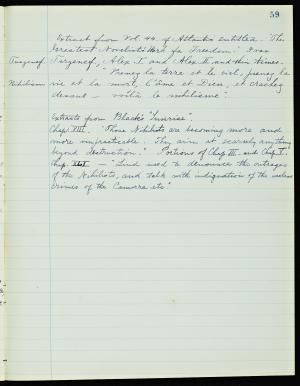 59
Extract from Vol. 44. of Atlantic entitled. "The
Greatest Novelist's Work for Freedom." Ivan
Turgenef, Turgenef, Alex. I. and Alex. II. and their times.
Nihilism "Prenez la terre et le ciel, prenez la
vie et la mort, l'âme et Dieu, et crachez
dessus — voilà le nihilisme."
Extracts from Black's "Sunrise".
Chap. VIII. "Those Nihilists are becoming more and
more impracticable. They aim at scarcely anything
beyond destruction." Portions of Chap. III. and Chap.
Chap. — "Lind used to denounce the outrages
of the Nihilists, and talk with indignation of the useless
crimes of the Camorra etc."